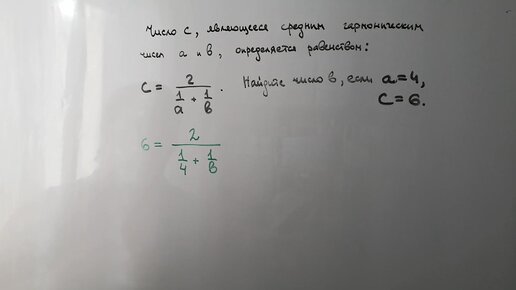 Число c, являющееся средним гармоническим
чисел a и b, определяется равенством:
c = 2 / (1/a + 1/b). Найдите число b, если a=4,
c=6.
6 = 2 / (1/4 + 1/b)